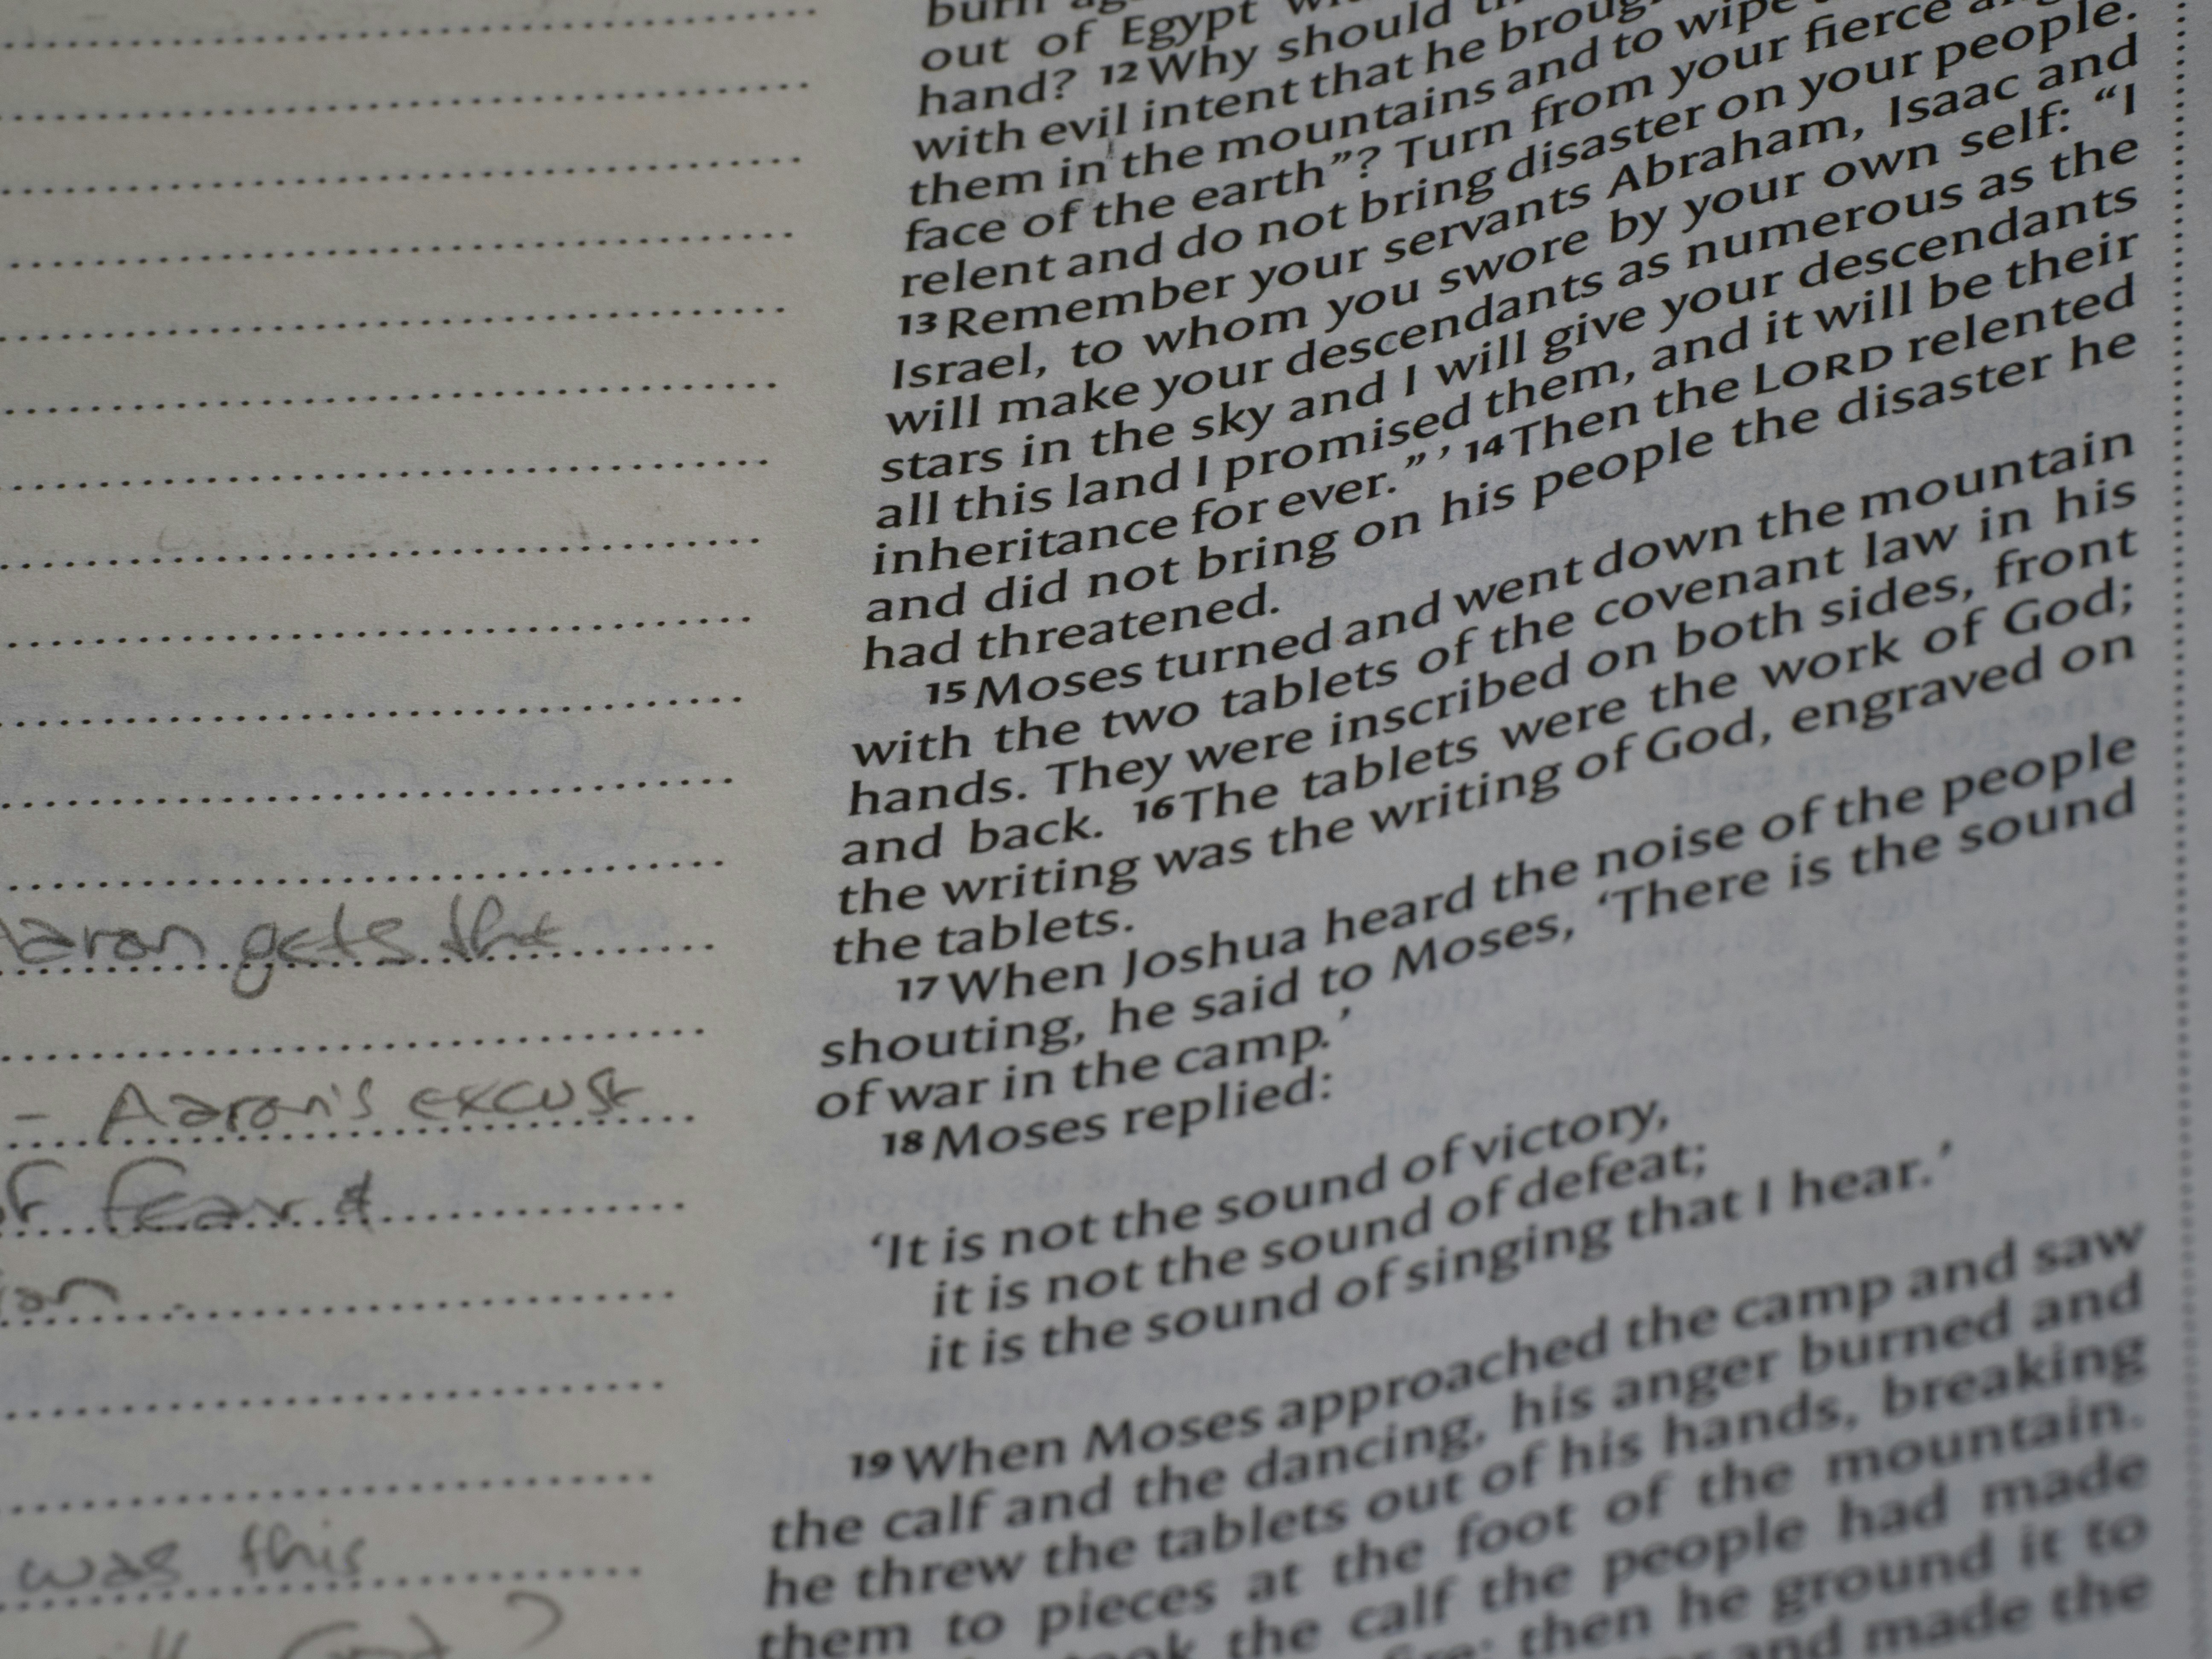 out of Egypt
hand? 12 Why should
with evil intent that he
them in the mountains and to wipe
face of the earth”? Turn from your fierce
relent and do not bring disaster on your people.
13 Remember your servants Abraham, Isaac and
Israel, to whom you swore by your own self: “I
will make your descendants as numerous as the
stars in the sky and I will give your descendants
all this land I promised them, and it will be their
inheritance for ever.” ’ 14 Then the LORD relented
and did not bring on his people the disaster he
had threatened.
15 Moses turned and went down the mountain
with the two tablets of the covenant law in his
hands. They were inscribed on both sides, front
and back. 16 The tablets were the work of God;
the writing was the writing of God, engraved on
the tablets.
17 When Joshua heard the noise of the people
shouting, he said to Moses, ‘There is the sound
of war in the camp.’
18 Moses replied:
‘It is not the sound of victory,
it is not the sound of defeat;
it is the sound of singing that I hear.’
19 When Moses approached the camp and saw
the calf and the dancing, his anger burned and
he threw the tablets out of his hands, breaking
them to pieces at the foot of the mountain.
took the calf the people had made
fire; then he ground it to
and made the
Aaron gets the
- Aaron's excuse
of fear &
was this
God ?